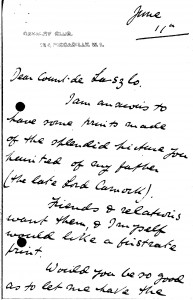 June
11th
BERKELEY CLUB,
PICCADILLY W.1.
Dear Count de Laszlo.
I am anxious to
have some prints made
of the splendid picture you
painted of my father
(the late Lord Carnock).
Friends & relations
want them, & I myself
would like a first rate
print.
Would you be so good
as to let me have the